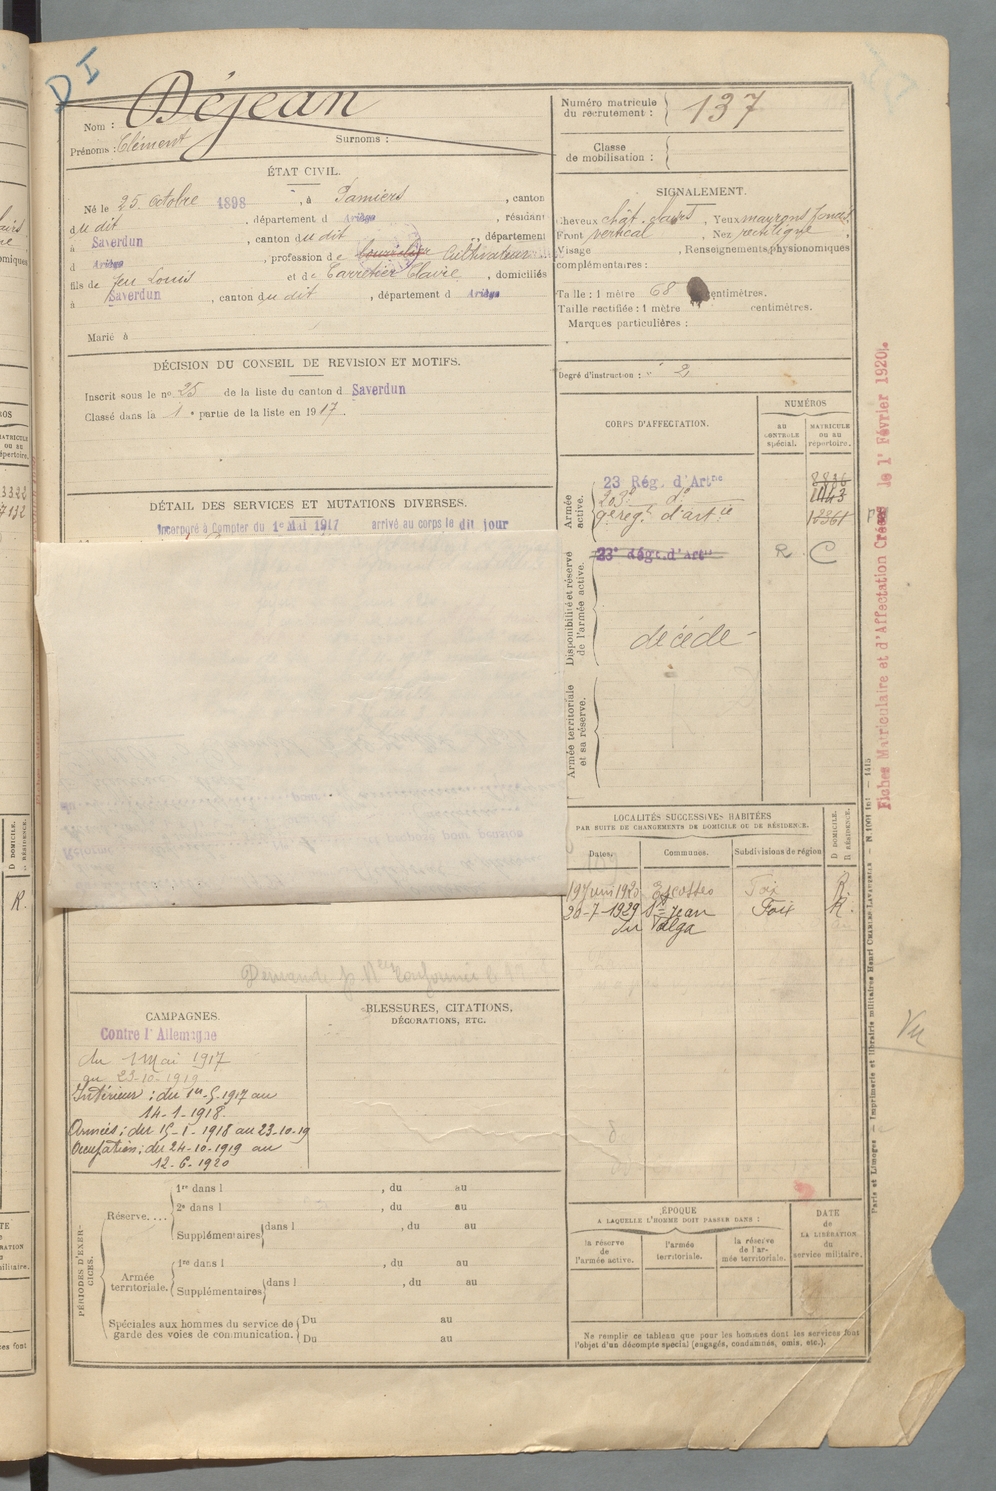 D I
Nom : Déjean
Prénoms : Clément Surnoms :
Numéro matricule
du recrutement : 137
Classe
de mobilisation :
ÉTAT CIVIL.
Né le 25 Octobre 1898, à Pamiers, canton
du dit, département d Ariège, résidant
à Saverdun, canton du dit, département
d Ariège, profession de Cultivateur
fils de feu Louis et de Carretier Claire, domiciliés
à Saverdun, canton du dit, département d Ariège
Marié à
SIGNALEMENT.
Cheveux chât. clairs, Yeux marrons foncés
Front vertical, Nez rectiligne,
Visage, Renseignements physionomiques
complémentaires :
Taille : 1 mètre 68 centimètres.
Taille rectifiée : 1 mètre centimètres.
Marques particulières :
Degré d'instruction : 2
DÉCISION DU CONSEIL DE REVISION ET MOTIFS.
Inscrit sous le no 25 de la liste du canton d Saverdun
Classé dans la 1e partie de la liste en 1917.
DÉTAIL DES SERVICES ET MUTATIONS DIVERSES.
Incorporé à Compter du 1e Mai 1917 arrivé au corps le dit jour
CORPS D'AFFECTATION.
NUMÉROS
AU
CONTROLE
spécial.
MATRICULE
ou au
répertoire.
Armée
active.
23 Rég. d'Artie
203e do
9e régt d'artie
Disponibilité et réserve
de l'armée active.
23e Régt. d'Artie R C
décédé
Armée territoriale
et sa réserve.
LOCALITÉS SUCCESSIVES HABITÉES
PAR SUITE DE CHANGEMENTS DE DOMICILE OU DE RÉSIDENCE.
Dates. Communes. Subdivisions de région
D DOMICILE.
R RÉSIDENCE.
19 Juin 1920 Escosse Foix R
20-7-1929 St Jean Foix R.
du Falga
Demande
CAMPAGNES.
Contre l'Allemagne
du 1 Mai 1917
au 23-10-1919
Intérieur : du 1er-5-1917 au
14-1-1918.
Armées : du 15-1-1918 au 23-10-19
Occupation : du 24-10-1919 au
12-6-1920
BLESSURES, CITATIONS,
DÉCORATIONS, ETC.
PÉRIODES D'EXER-
CICES.
Réserve....
1re dans l , du au
2e dans l , du au
Supplémentaires dans l , du au
Armée
territoriale.
1re dans l , du au
Supplémentaires dans l , du au
Spéciales aux hommes du service de
garde des voies de communication.
Du au
Du au
ÉPOQUE
A LAQUELLE L'HOMME DOIT PASSER DANS :
la réserve
de
l'armée active.
l'armée
territoriale.
la réserve
de l'ar-
mée territoriale.
DATE
de
LA LIBÉRATION
du
service militaire.
Ne remplir ce tableau que pour les hommes dont les services font
l'objet d'un décompte spécial (engagés, condamnés, omis, etc.).
Fiches Matriculaire et d'Affectation Créées le 1r Février 1920.
Paris et Limoges. — Imprimerie et librairie militaires Henri CHARLES-LAVAUZELLE
Vu